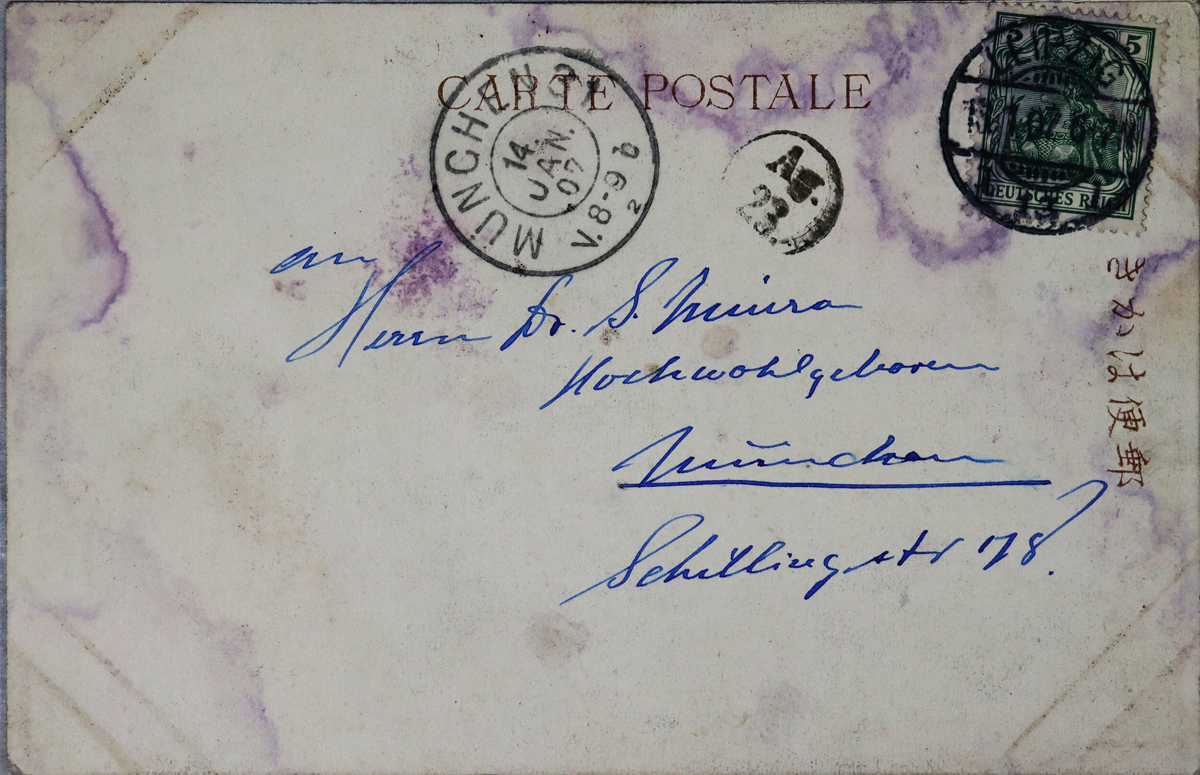 CARTE POSTALE
MÜNCHEN
14.
JAN.
07
V.8-9
b
2
Ag.
23.
LEIPZIG
07
5
DEUTSCHES REICH
きかは便郵
an
Herrn Dr. S. Miura
Hochwohlgeboren
München
Schillingstr 178.